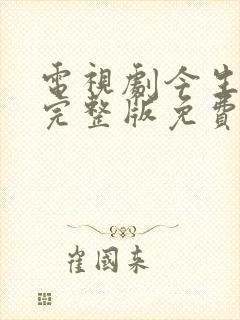 電視劇今生
完整版免費
崔國來